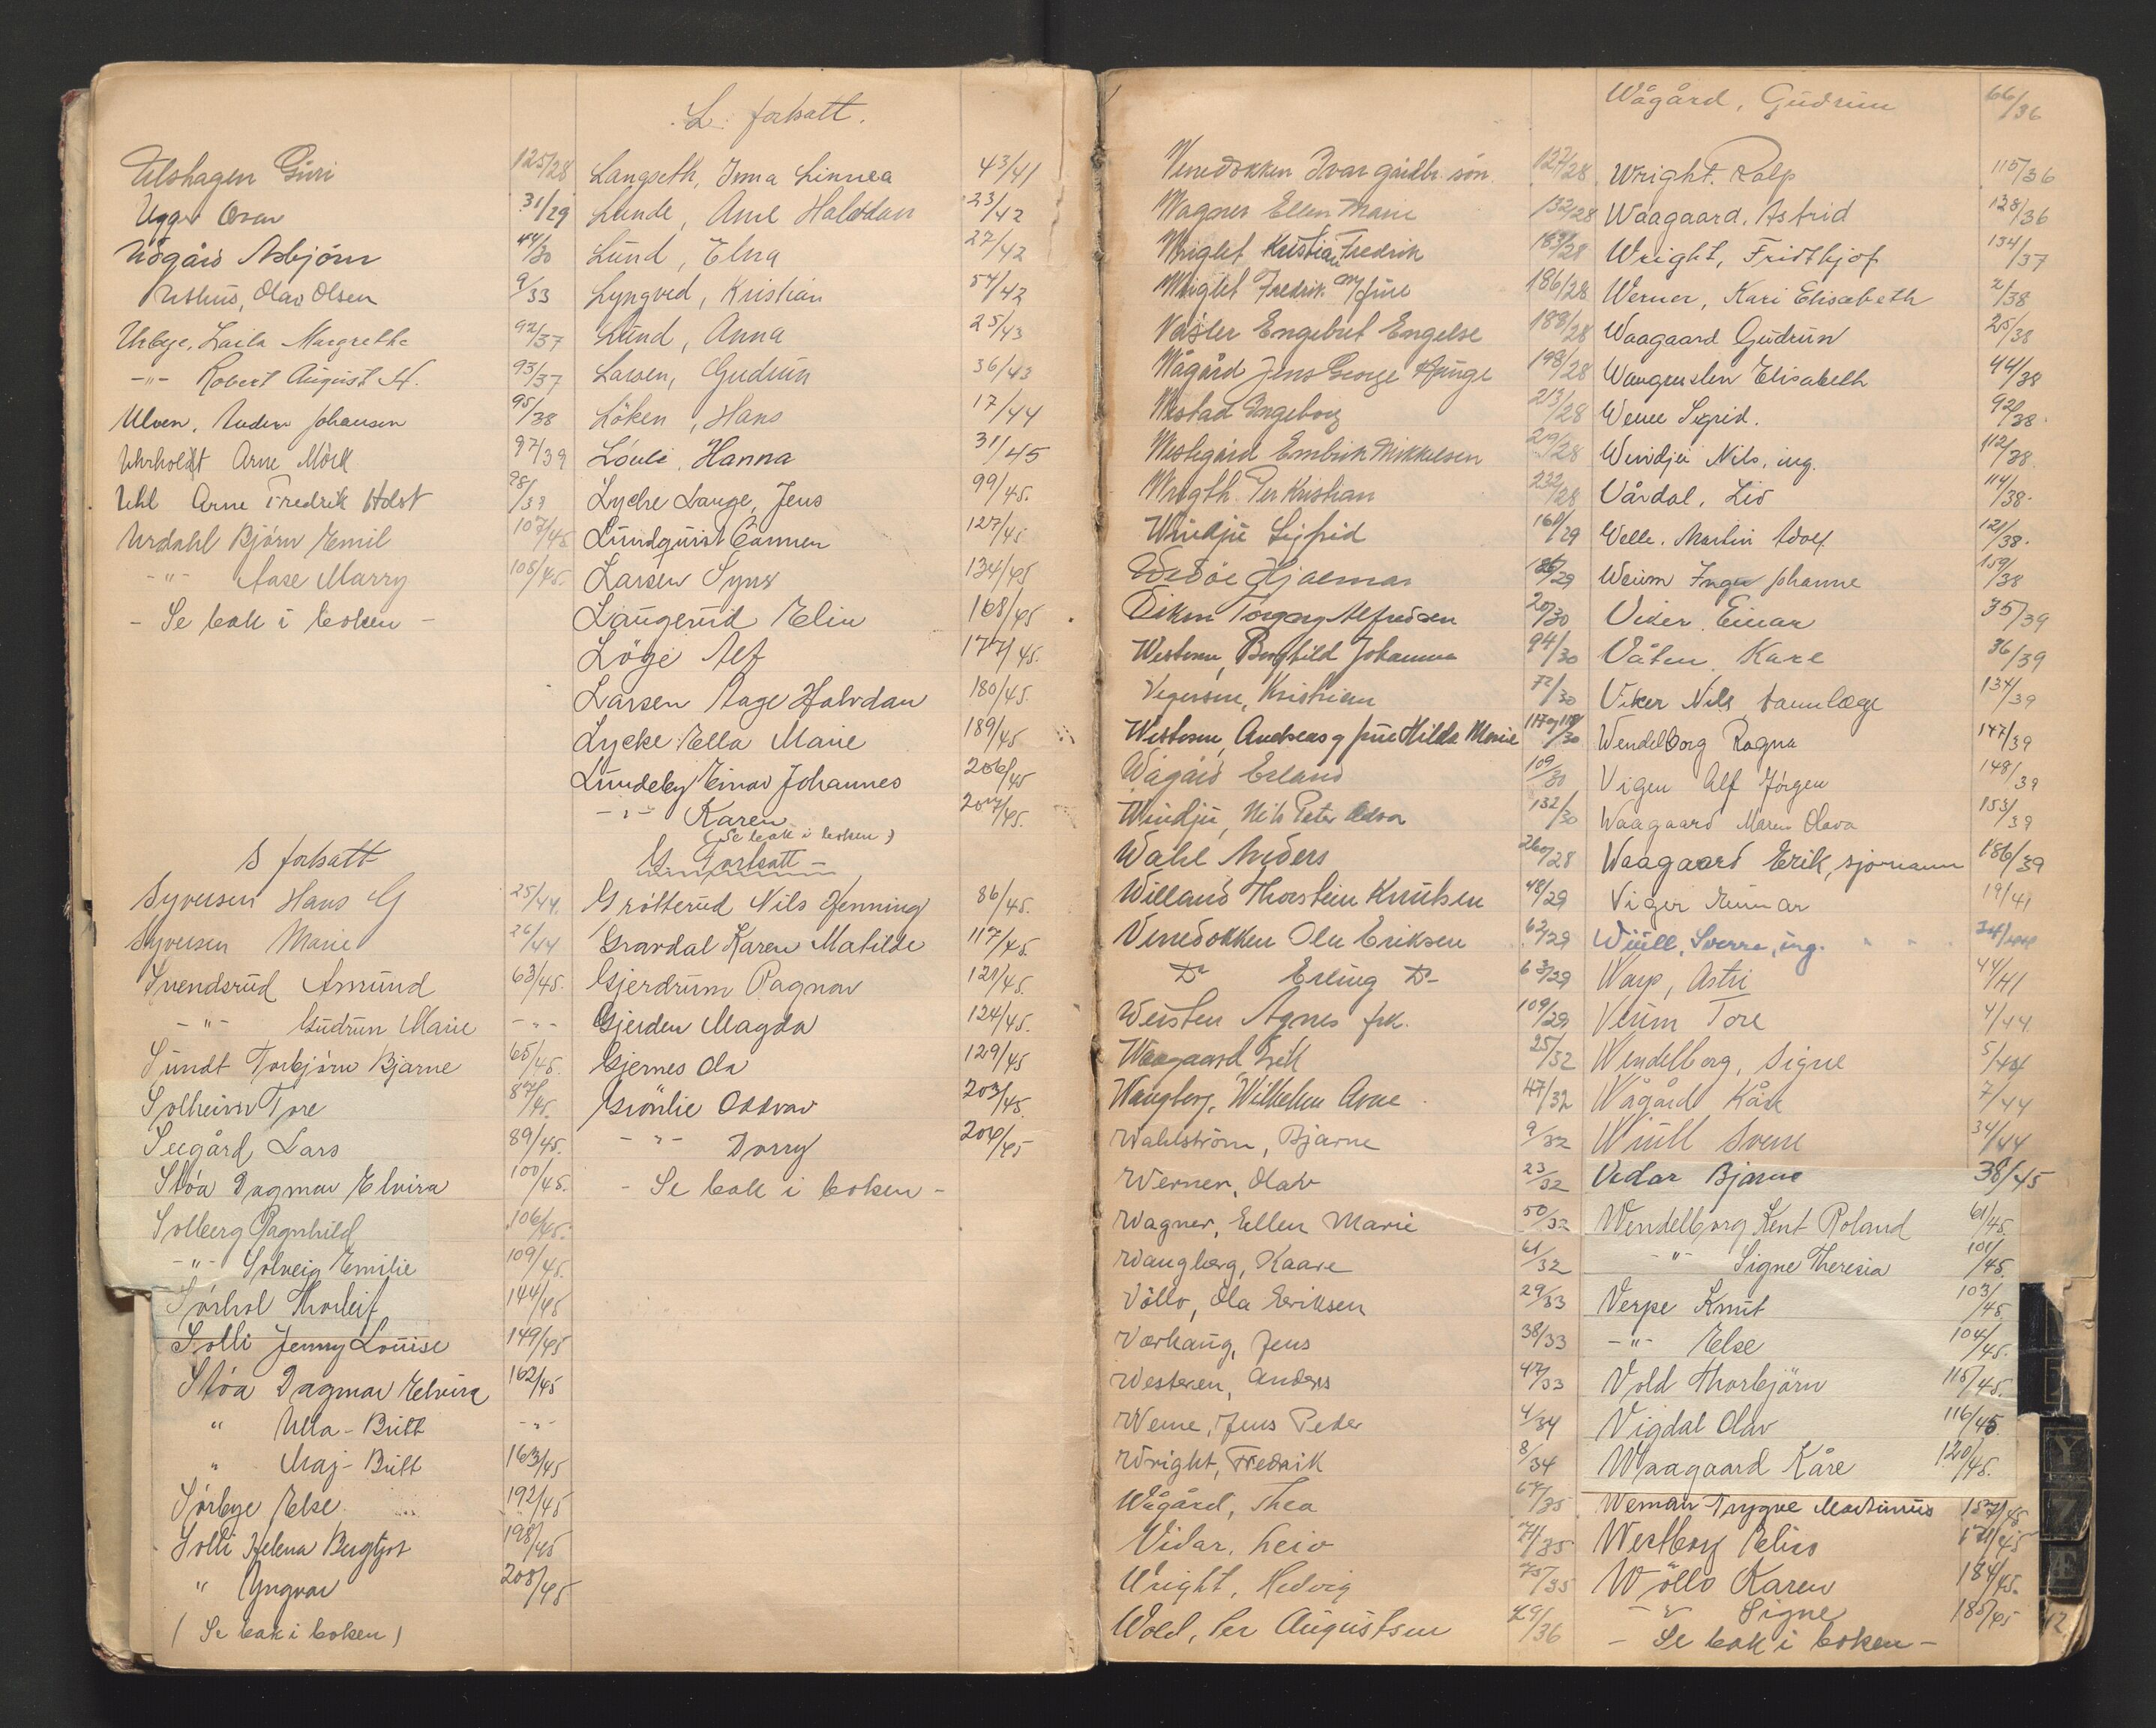 Ulshagen Guri 125/28
Ugger Oscar 31/29
Uågård Asbjörn 44/30
Ushus, Olav Olsen 9/33
Urbye, Laila Margrethe 92/37
-"- Robert August H. 93/37
Ulven, Anders Johansen 95/38
Uhrholdt Arne Mörk 97/39
Uhl Arne Fredrik Holst 98/39
Urdahl Björn Emil 107/45
-"- Aase Marry 108/45.
- Se bak i boken -
S fortsatt
Syversen Hans G 25/44.
Syversen Marie 26/44
Svendsrud Amund 63/45.
-"- Gudrun Marie -"-
Sundt Torbjörn Bjarne 65/45.
Solheim Tore 87/45.
Seegård Lars 89/45.
Stöa Dagmar Elvira 100/45.
Solberg Ragnhild 106/45.
-"- Solveig Emilie 109/45.
Sörhol Thorleif 144/45
Solli Jenny Louise 149/45
Stöa Dagmar Elvira 162/45
" Ulla-Britt -"-
" Maj-Britt 163/45
Sörbye Else 192/45
Solli Helena Bergljot 198/45
" Yngvar 208/45
(Se bak i boken)
L fortsatt.
Langseth, Irma Linnea 43/41
Lunde, Arne Halvdan 23/42
Lund, Elna 27/42
Lyngved, Kristian 54/42
Lund, Anna 25/43
Larsen, Gudrun 36/43
Löken, Hans 17/44
Löuli, Hanna 31/45
Lyche Lange, Jens 99/45.
Lundquist Carmen 127/45
Larsen Synv 134/45
Laugerud Elin 168/45
Löge Alf 177/45.
Larsen Aage Halvdan 180/45.
Lycke Ella Marie 189/45
Lundeby Einar Johannes 206/45
-"- Karen 207/45.
(Se bak i boken)
G Fortsatt -
Grötterud Nils Henning 86/45.
Gravdal Karen Matilde 117/45.
Gjerdrum Ragnar 121/45.
Gjerden Magda 124/45.
Gjernes Ola 129/45
Grönlie Oddvar 203/45.
-"- Dorry 204/45
- Se bak i boken -
Venedokken Ivar Guldbr.sön 127/28
Wagner Ellen Marie 132/28
Wright Kristian Fredrik 183/28
Wright Fredrik og frue 186/28
Vasler Engebret Engelse 188/28
Wågård Jens George Hjunge 198/28
Westad Ingeborg 213/28
Westegård Embrik Mikkelsen 219/28
Wrigth. Per Kristian 232/28
Windju Sigfrid 160/29
Wedöe Hjalmar 186/29
Viken Torgny Alfredsen 20/30
Western, Borghild Johanna 94/30
Vegersen, Kristian 72/30
Westeren, Andreas og frue Hilda Marie 117 og 118/30
Wågård Erland 109/30
Windju, Nils Peter 132/30
Wahl Anders 260/28
Willand Thorstein Knutsen 48/29
Venedokken Ole Eriksen 62/29
Do Erling Do 63/29
Weisten Agnes frk. 109/29
Waagaard Erik 25/32
Wangberg, Wilhelm Arne 47/32
Wahlström, Bjarne 9/32
Werner, Olav 23/32
Wagner, Ellen Marie 50/32
Wangberg, Kaare 61/32
Völlo, Ola Eriksen 29/33
Vorhaug, Jens 38/33
Westeren, Anders 47/33
Weme, Jens Peder 4/34
Wright, Fredrik 8/34
Wågård, Thea 67/35
Vidar, Leiv 71/35
Wright, Hedvig 75/35
Wold, Per Augustsen 29/36
Wågård, Gudrun 66/36
Wright. Ralp 115/36
Waagaard, Astrid 128/36
Wright, Fridthjof 134/37
Werner, Kari Elisabeth 2/38
Waagaard Gudrun 25/38
Wangensten Elisabeth 44/38
Weme Sigrid. 92/38.
Windju Nils, ing. 112/38.
Vårdal, Liv 114/38.
Welle. Martin Adolf 121/38.
Weium Inger Johanne 159/38
Viker Einar 35/39
Våten, Kare 36/39
Viker Nils tannlæge 134/39
Wendelborg Ragna 147/39
Vigen Alf Jörgen 148/39
Waagaard Maren Olava 153/39
Waagaard Erik, sjömann 186/39
Viger Reimar 19/41
Wüll, Sverre, ing. 34/44
Warp, Astri 44/41
Veum Tore 4/44
Wendelborg, Signe 5/44
Wågård Kåre 7/44
Wiull Svein 34/44
Vedar Bjarne 38/45
Wendelborg Kent Roland 61/45.
-"- Signe Theresia 101/45.
Verpe Knut 103/45.
-"- Else 104/45.
Vold Thorbjörn 115/45.
Vigdal Olav 116/45
Waagaard Kåre 120/45.
Weman Trygve Martinius 157/45
Westberg Eliss 171/45
Wöllo Karen 184/45.
-"- Signe 185/45
- Se bak i boken -
Y
Z
Æ